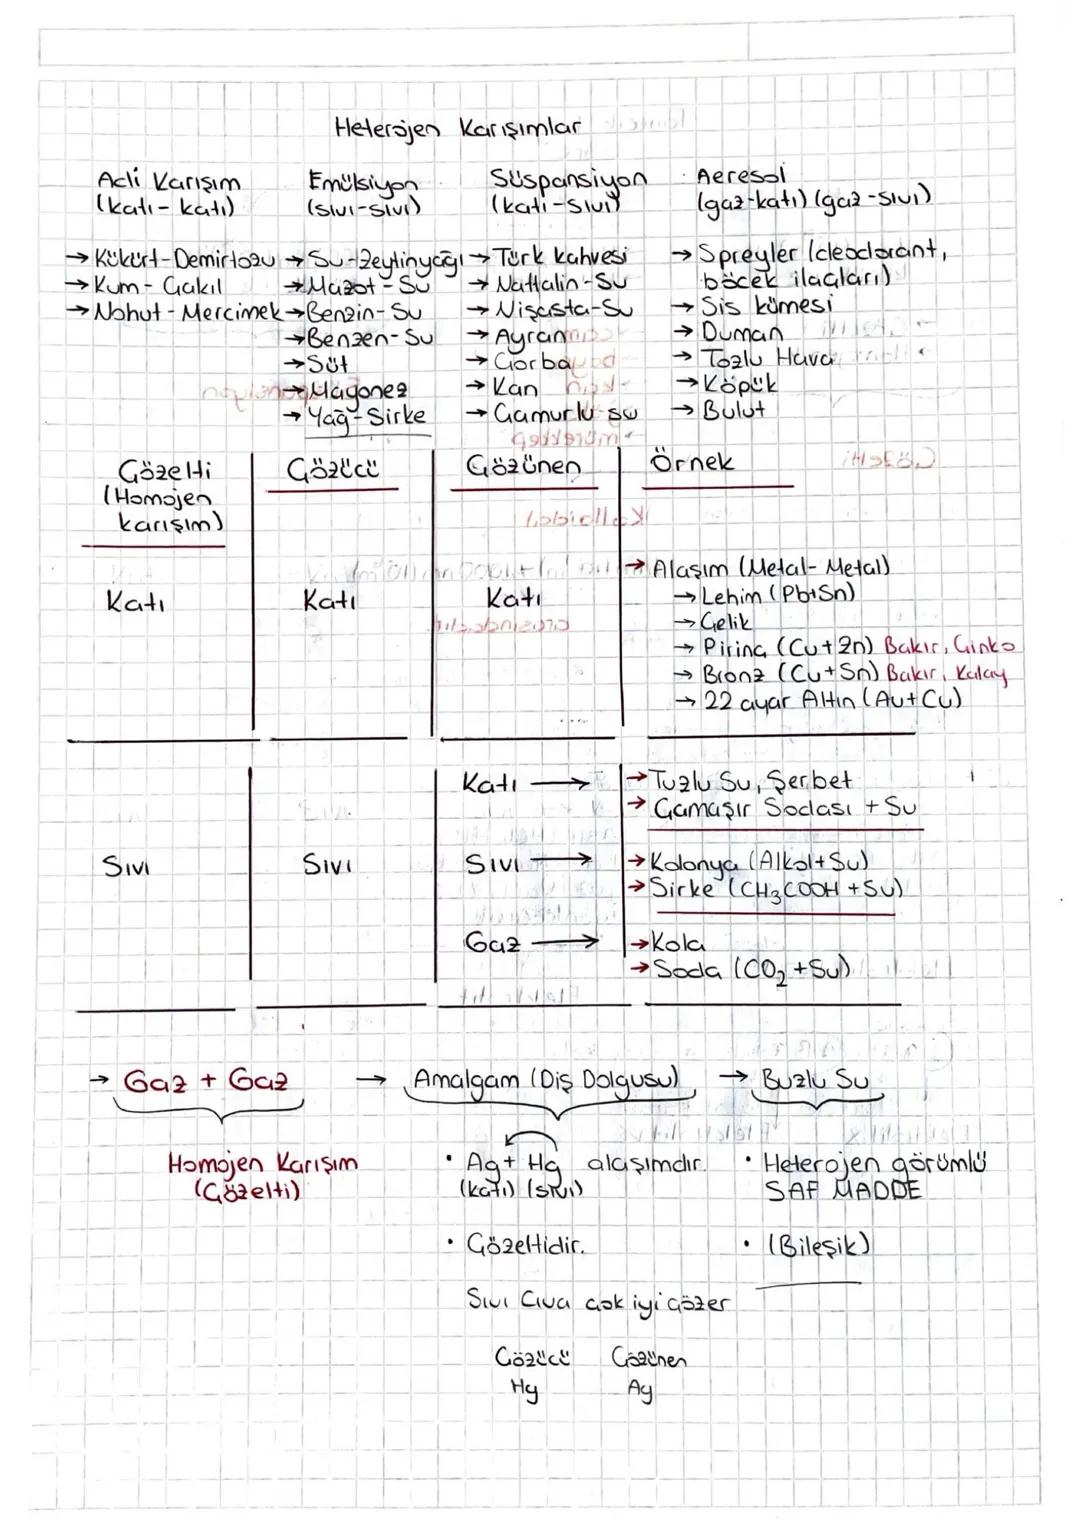 Heterojen Karışımlar
Adi Karışım
(katı-katı)
→ Kükürt-Demirtozu
→ Kum-Çakıl
→ Nohut-Mercimek
Emülsiyon
(sıvı-sıvı)
→ Su-Zeytinyağı
→ Mazot-Su
→ Benzin-Su
→ Benzen-Su
→ Süt
→ Mayonez
→ Yağ-Sirke
Süspansiyon
(katı-sıvı)
→ Türk kahvesi
→ Naftalin-Su
→ Nişasta-Su
→ Ayran
→ Çorba
→ Kan
→ Çamurlu su
Aeresol
(gaz-katı) (gaz-sıvı)
→ Spreyler (deodorant,
böcek ilaçları)
→ Sis kümesi
→ Duman
→ Tozlu Hava
→ Köpük
→ Bulut
Çözelti
(Homojen
karışım)
Çözücü
Çözünen
Örnek
Katı
Katı
Katı
→ Alaşım (Metal-Metal)
→ Lehim (Pb+Sn)
→ Çelik
→ Pirinç (Cu+Zn) Bakır, Çinko
→ Bronz (Cu+Sn) Bakır, Kalay
→ 22 ayar Altın (Au+Cu)
Sıvı
Sıvı
Katı →
→ Tuzlu Su, Şerbet
→ Çamaşır Sodası + Su
Sıvı →
→ Kolonya (Alkol+Su)
→ Sirke (CH₃COOH +Su)
Gaz →
→ Kola
→ Soda (CO₂ +Su)
→ Gaz + Gaz
Homojen Karışım
(Çözelti)
→ Amalgam (Diş Dolgusu)
• Ag + Hg alaşımdır.
(katı) (sıvı)
• Çözeltidir.
Sıvı Cıva çok iyi çözer
Çözücü Çözünen
Hg Ag
→ Buzlu Su
• Heterojen görümlü
SAF MADDE
• (Bileşik)